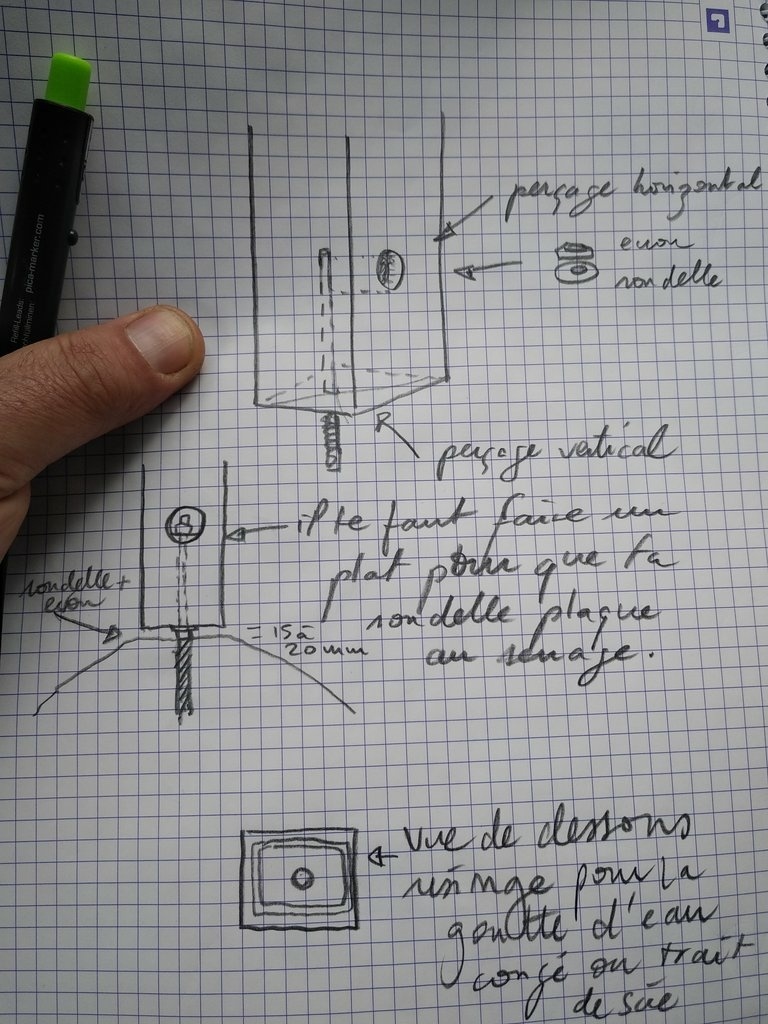 pica-marker.com
perçage horizontal
ecrou
rondelle
perçage vertical
il te faut faire un
plat pour que ta
rondelle plaque
au serrage.
rondelle +
ecrou
= 15 à
20 mm
vue de dessous
rainage pour la
goutte d'eau
congé ou trait
de scie